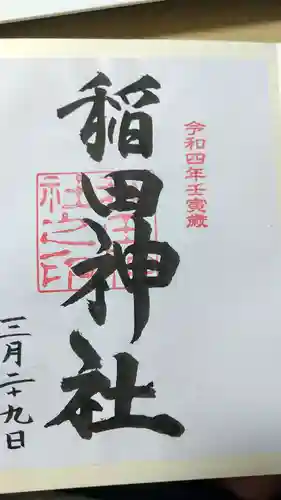 令和四年壬寅歳
稲田神社
稲田神社之印
三月二十九日